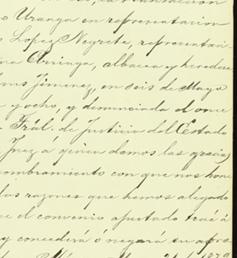 o Uranga en representacion
Lopez Negrete, representan
na Arriaga, albacea y herede
Jimenez, en seis de Mayo
y ocho, y denunciada el once
Trál. de Justicia del Estado
Juez a quien damos las gracias
ombramiento con que nos hon
las razones que hemos alegado
e el convenio ajustado
y concederá ó negará su apro